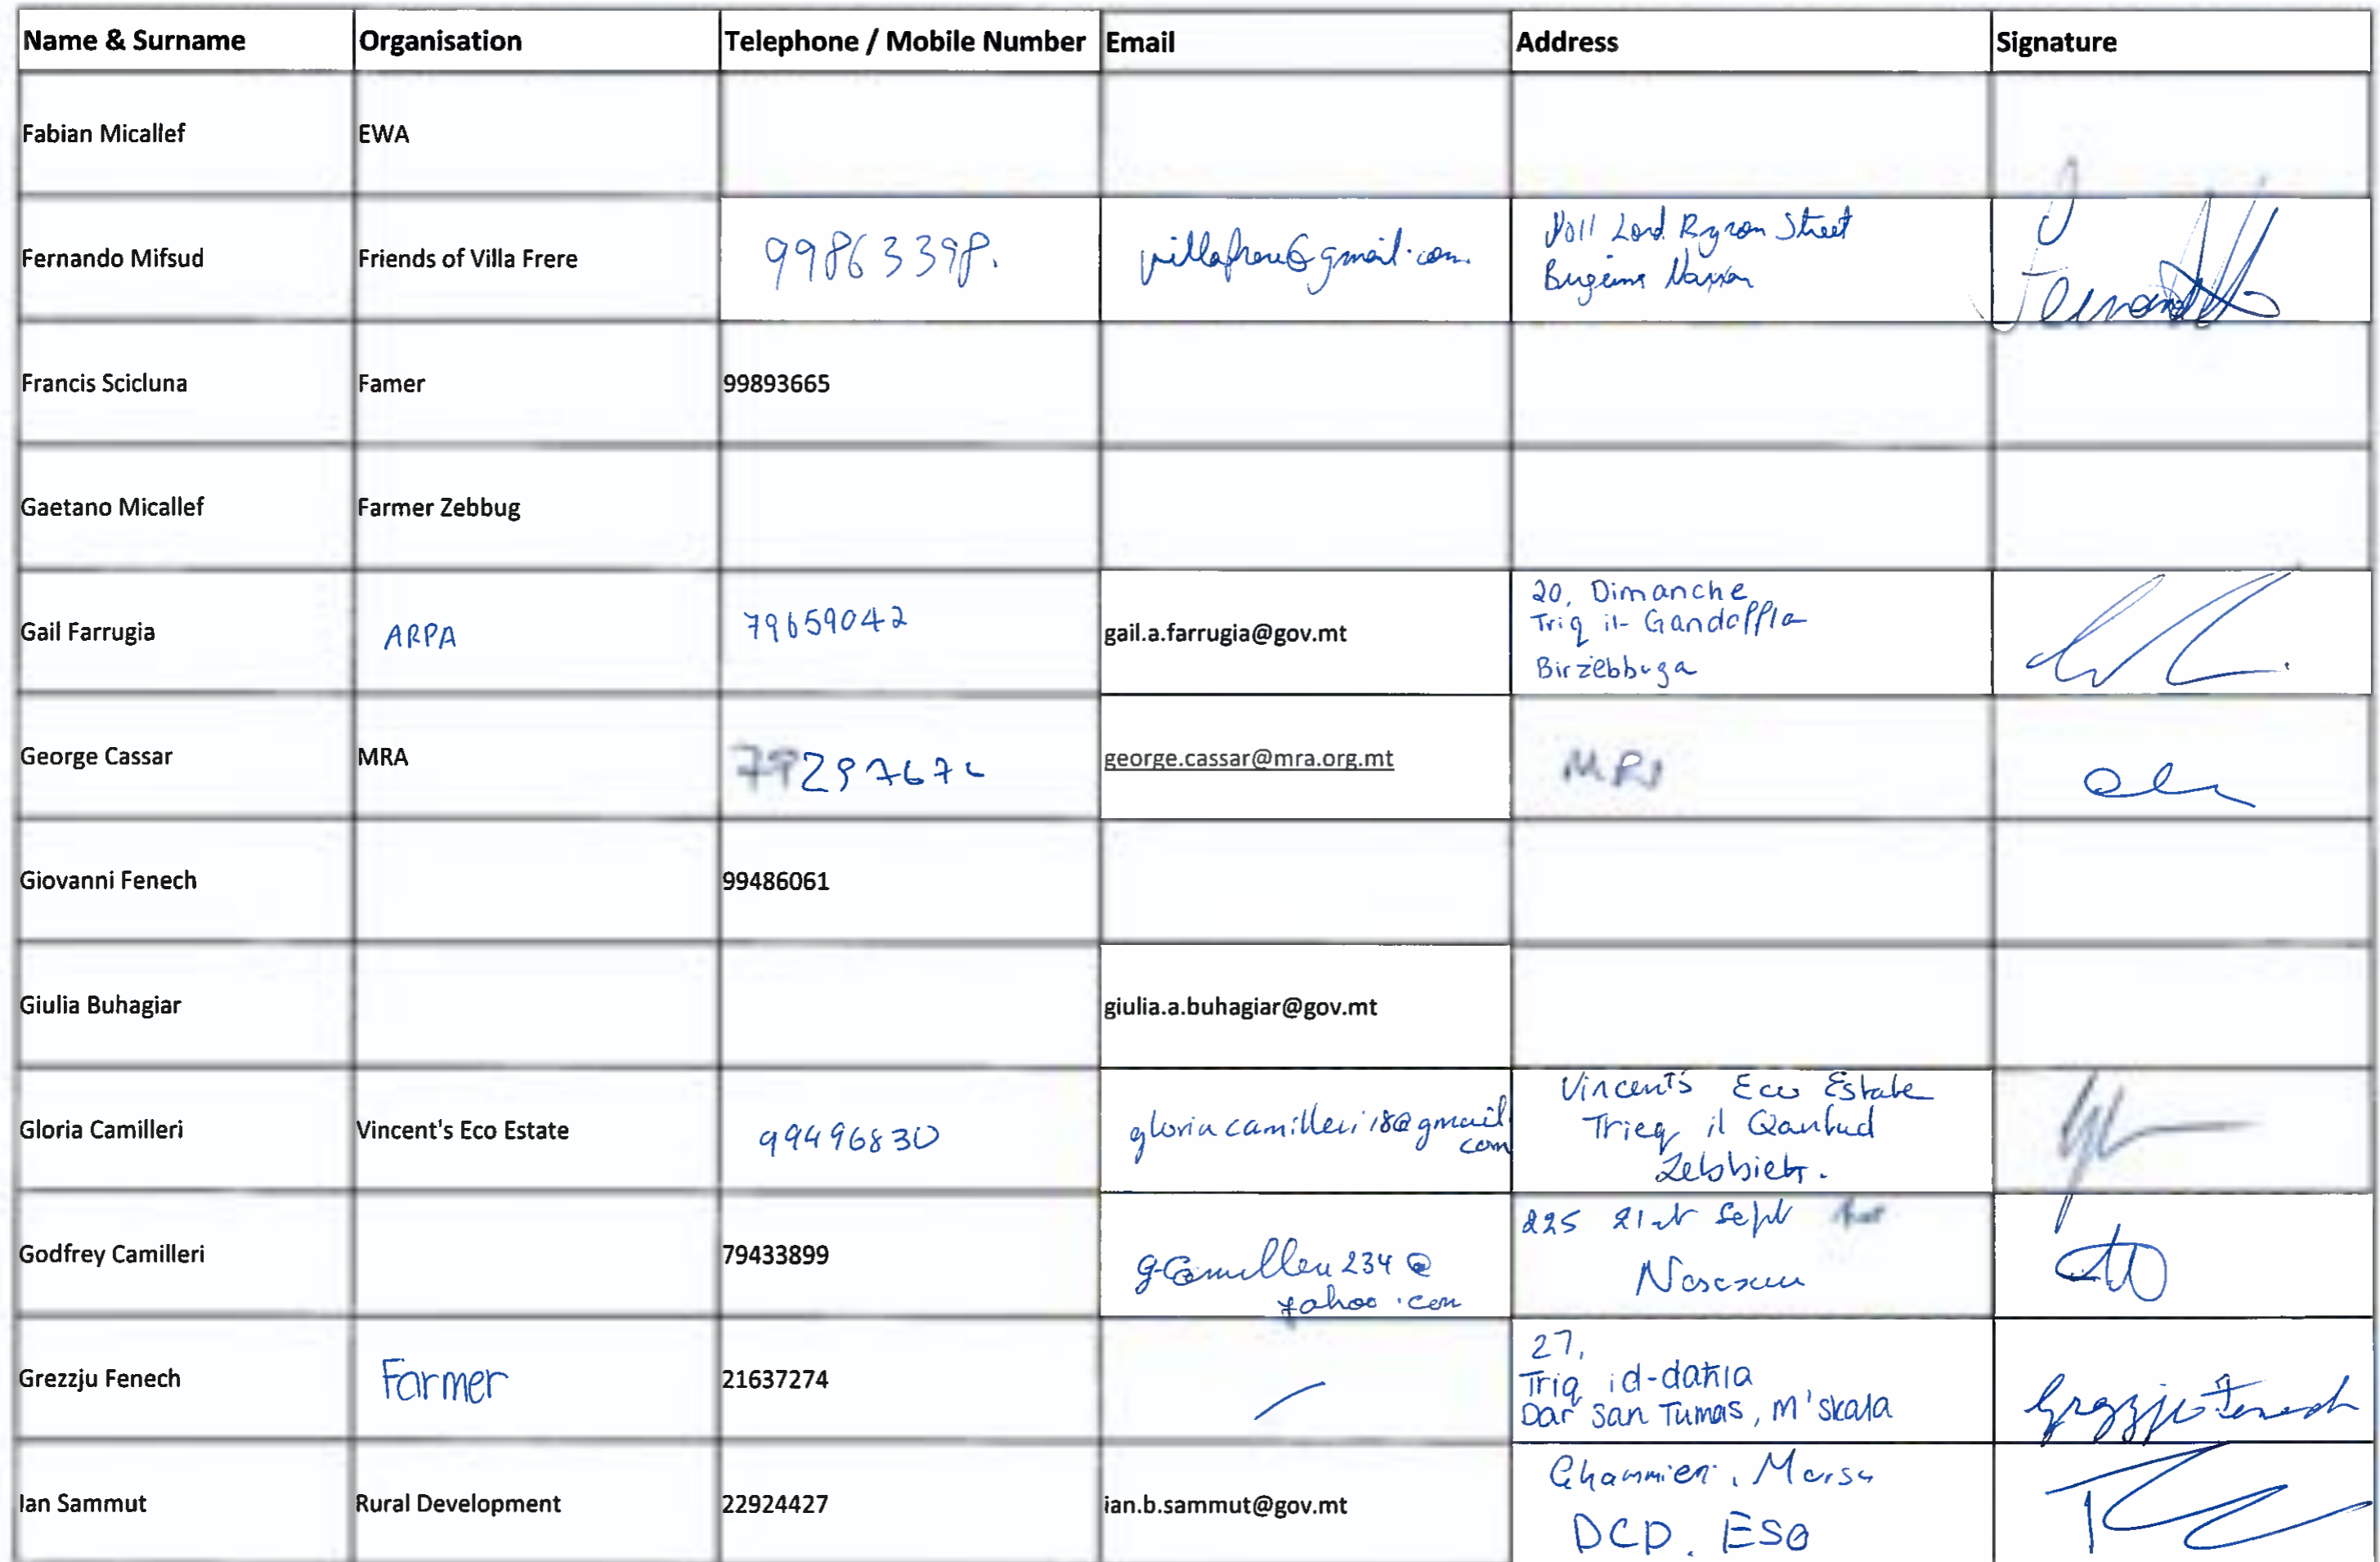 Name & Surname Organisation Telephone / Mobile Number Email Address Signature
Fabian Micallef EWA
Fernando Mifsud Friends of Villa Frere 99863398. Lord Byron Street
Francis Scicluna Famer 99893665
Gaetano Micallef Farmer Zebbug
Gail Farrugia ARPA 79659042 gail.a.farrugia@gov.mt 20, Dimanche
Triq il-
Birzebbuga
George Cassar MRA george.cassar@mra.org.mt
Giovanni Fenech 99486061
Giulia Buhagiar giulia.a.buhagiar@gov.mt
Gloria Camilleri Vincent's Eco Estate 99496830 gloriacamilleri18@gmail
com
Vincent's Eco Estate
Trieq il
Godfrey Camilleri 79433899 225 21st Sept
yahoo.com
Grezzju Fenech Farmer 21637274 27,
Triq id-daħla
Dar San Tumas, M'skala
Grezzju Fenech
Ian Sammut Rural Development 22924427 ian.b.sammut@gov.mt Ghammieri, Marsa
DCD.